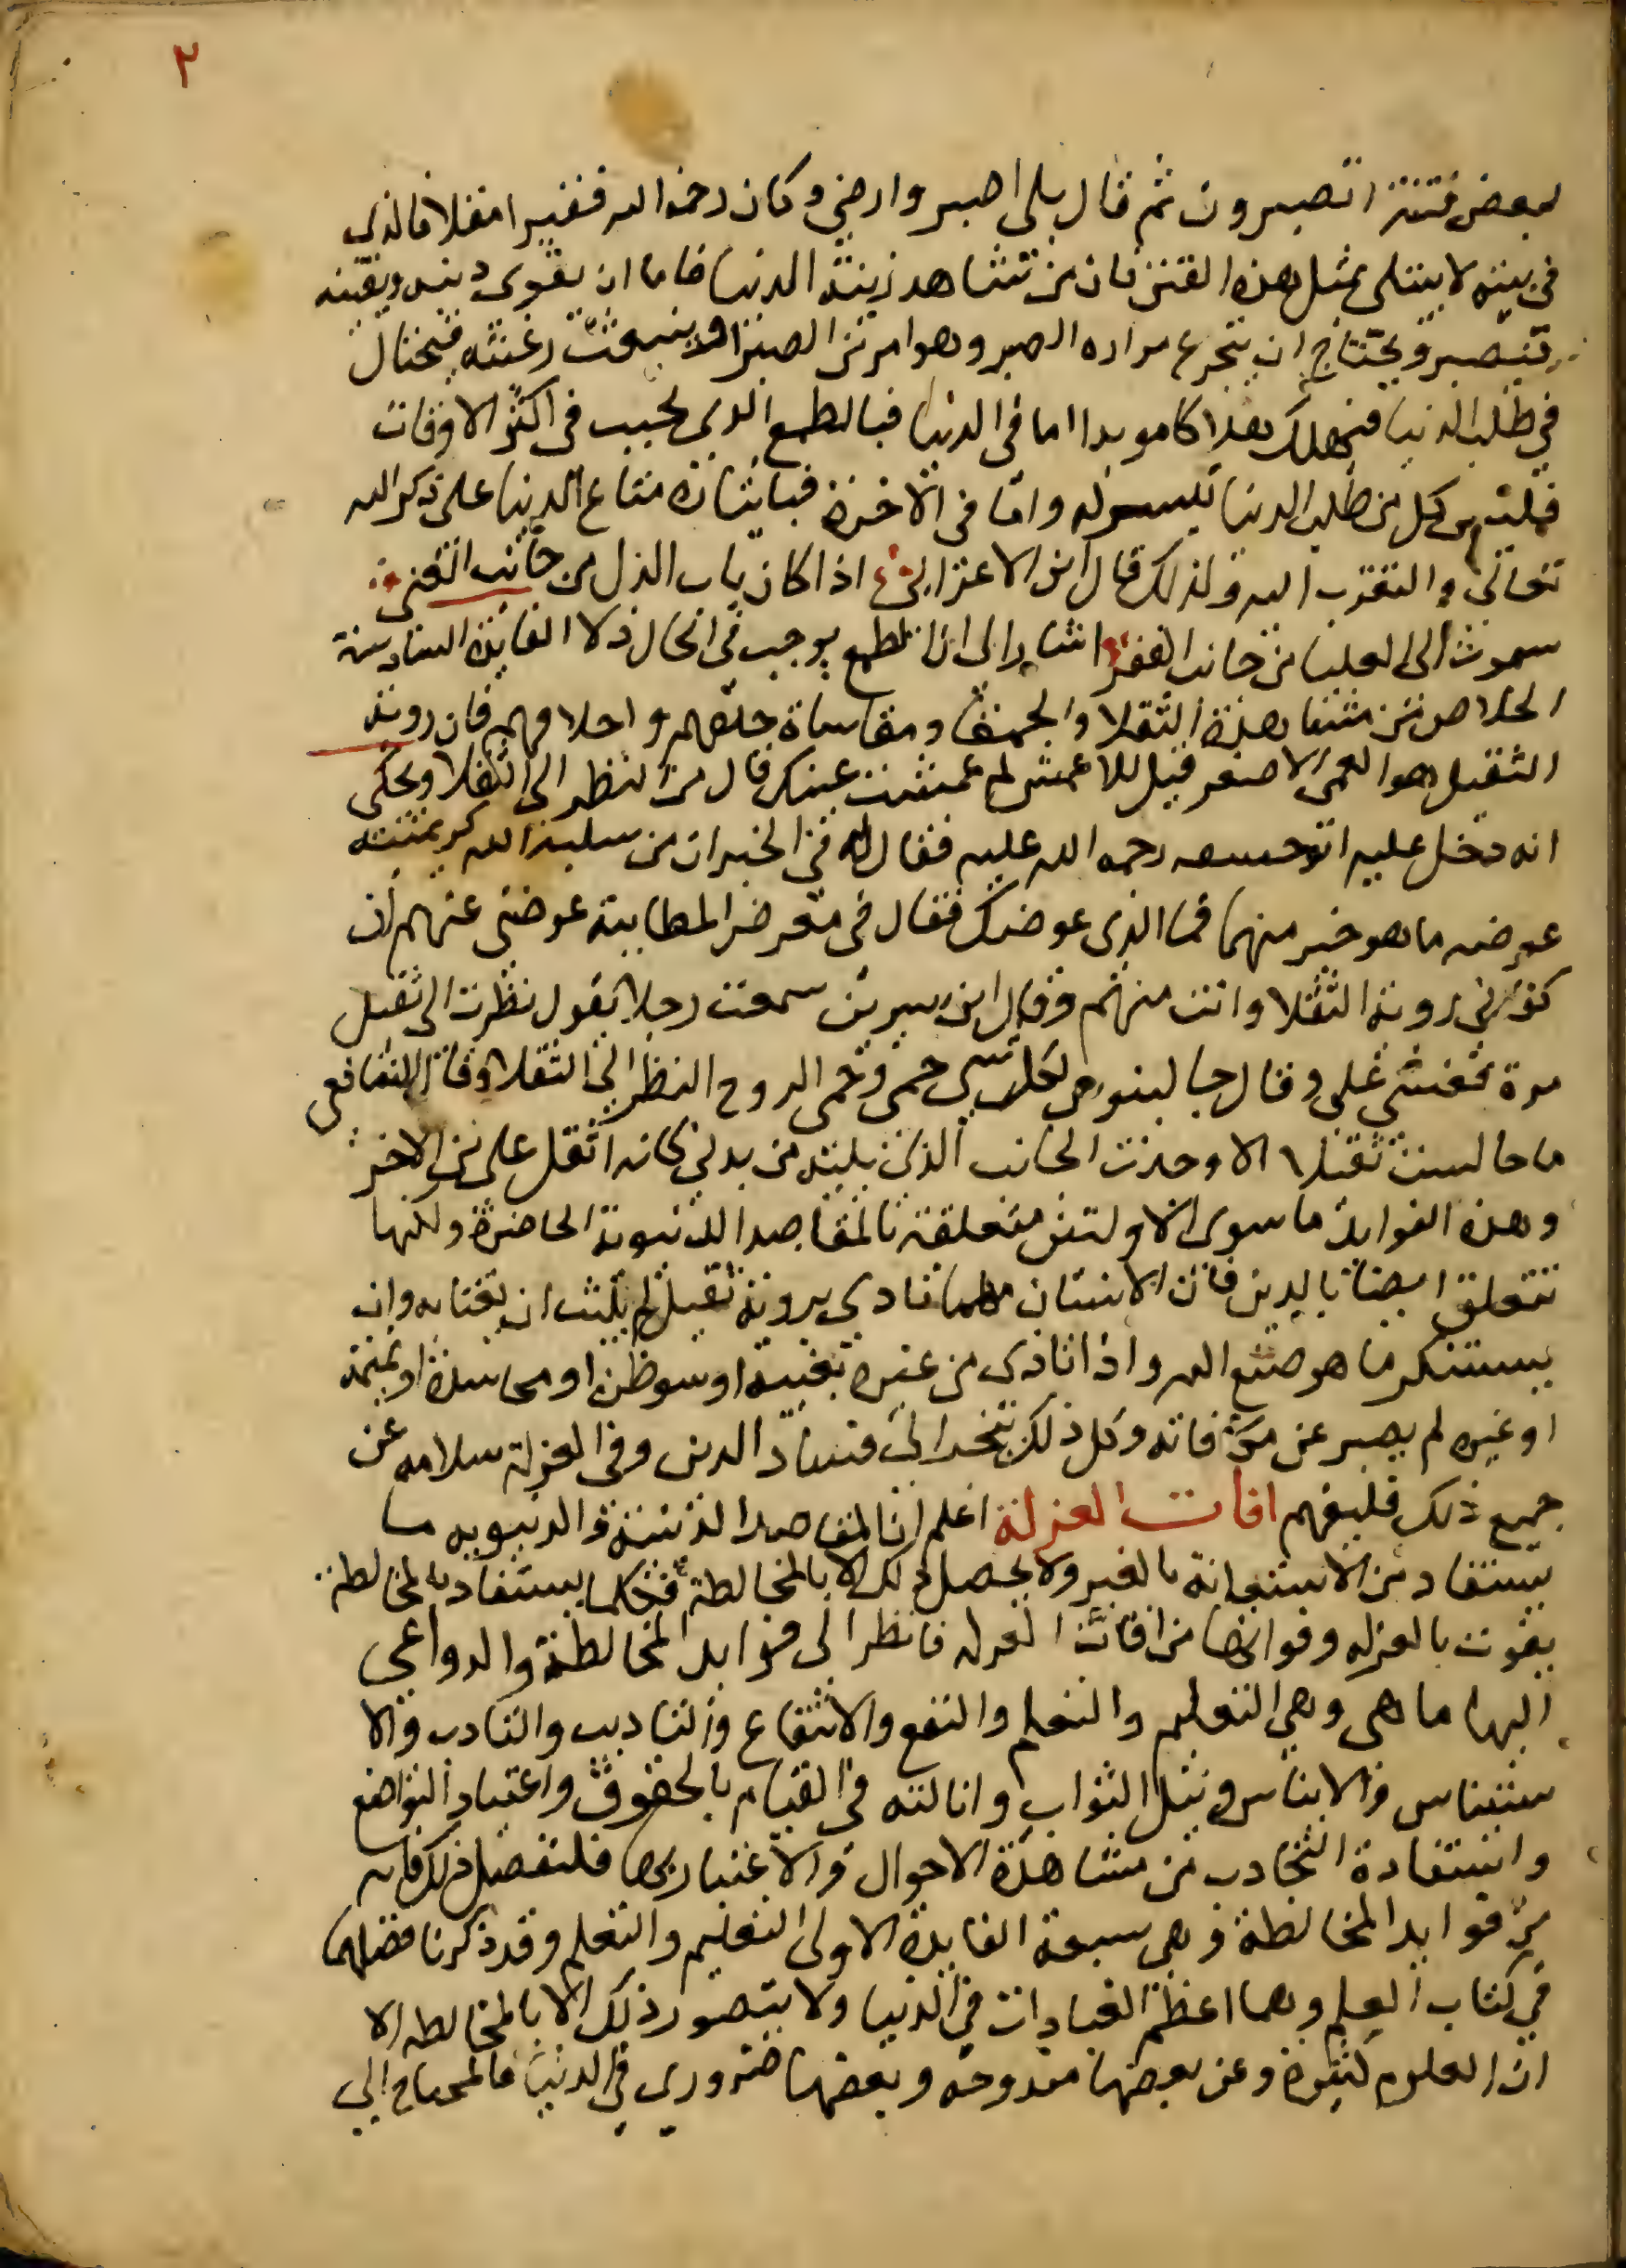 ٢
لبعض فتنة اتصبرون ثم قال بلى اصبر وارضى وكان رحمه الله فقيرا مقلا فالذي
في بيته لا يبتلى بمثل هذه الفتن فان من شاهد زينة الدنيا فاما ان يقوى دينه ويقينه
فيصبر ويحتاج ان يتجرع مراره الصبر وهو امر من الصبر او ينبعث رغبته فيحتال
في طلب الدنيا فيهلك هلاكا موبدا اما في الدنيا فبالطمع الذي يخيب في اكثر الاوقات
فليس كل من طلب الدنيا تيسر له واما في الاخرة فبايثاره متاع الدنيا على ذكر الله
تعالى والتقرب اليه ولذلك قال ابن الاعرابي اذا كان باب الذل من جانب الغنى
سموت الى العليا من جانب الفقر اشار الى ان الطمع يوجب في الحال ذلا الفايدة السادسة
الخلاص من مشاهدة الثقلا والحمقا ومقاساة خلقهم واخلاقهم فان روية
الثقيل هو العمى الاصغر قيل للاعمش لم عمشت عينك قال من النظر الى الثقلا ويحكى
انه دخل عليه ابو حنيفه رحمه الله عليه فقال له في الخبر ان من سلب الله كريمتيه
عوضه ما هو خير منهما فما الذي عوضك فقال في معرض المطايبة عوضني عنهم ان
كفاني روية الثقلا وانت منهم وقال ابن سيرين سمعت رجلا يقول نظرت الى ثقيل
مرة فغشي علي وقال جالينوس لكل شي حمى وحمى الروح النظر الى الثقلا وقال الشافعي
ما جالست ثقيلا الا وجدت الجانب الذي يليه من بدني كانه اثقل علي من الاخر
وهذه الفوايد ما سوى الاولتين متعلقة بالمقاصد الدنيوية الحاضرة ولكنها
تتعلق ايضا بالدين فان الانسان مهما تاذى بروية ثقيل لم يلبث ان يغتابه وان
يستنكر ما هو صنع الله واذا تاذى من غيره بغيبة او سو ظن او محاسدة او نميمة
او غيره لم يصبر عن مكافاته وكل ذلك ينجر الى فساد الدين وفي العزلة سلامه عن
جميع ذلك فليفهم افات العزلة اعلم ان المقاصد الدينية والدنيويه ما
يستفاد من الاستعانة بالغير ولا يحصل ذلك الا بالمخالطة فكلما يستفاد بالمخالطة
يفوت بالعزله وفواتها من افات العزله فانظر الى فوايد المخالطة والدواعي
اليها ما هي وهي التعليم والتعلم والنفع والانتفاع والتاديب والتادب والا
ستيناس والايناس ونيل الثواب وانالته في القيام بالحقوق واعتياد التواضع
واستفادة التجارب من مشاهدة الاحوال والاعتبار بها فلنفصل ذلك فانه
من فوايد المخالطة وهي سبعة الفايدة الاولى التعليم والتعلم وقد ذكرنا فضلهما
في كتاب العلم وهما اعظم العبادات في الدنيا ولا يتصور ذلك الا بالمخالطه الا
ان العلوم كثيرة وعن بعضها مندوحه وبعضها ضروري في الدنيا فالمحتاج الى